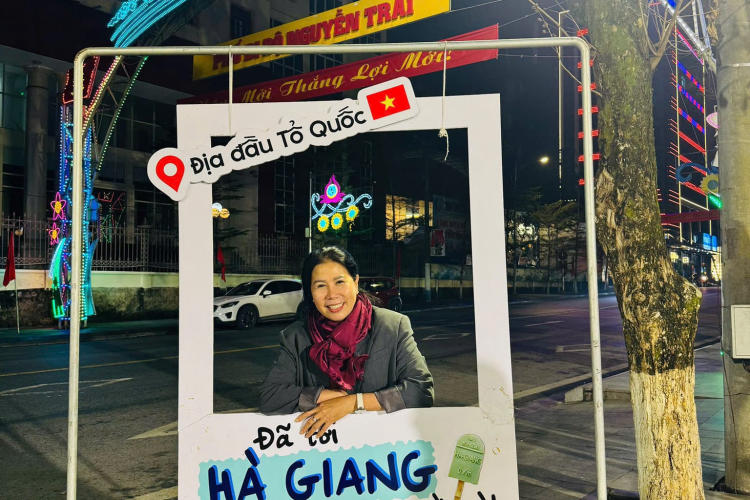 NGUYỄN TRÃI
Mới Thắng Lợi Mới!
Địa đầu Tổ Quốc
Đã tới
HÀ GIANG